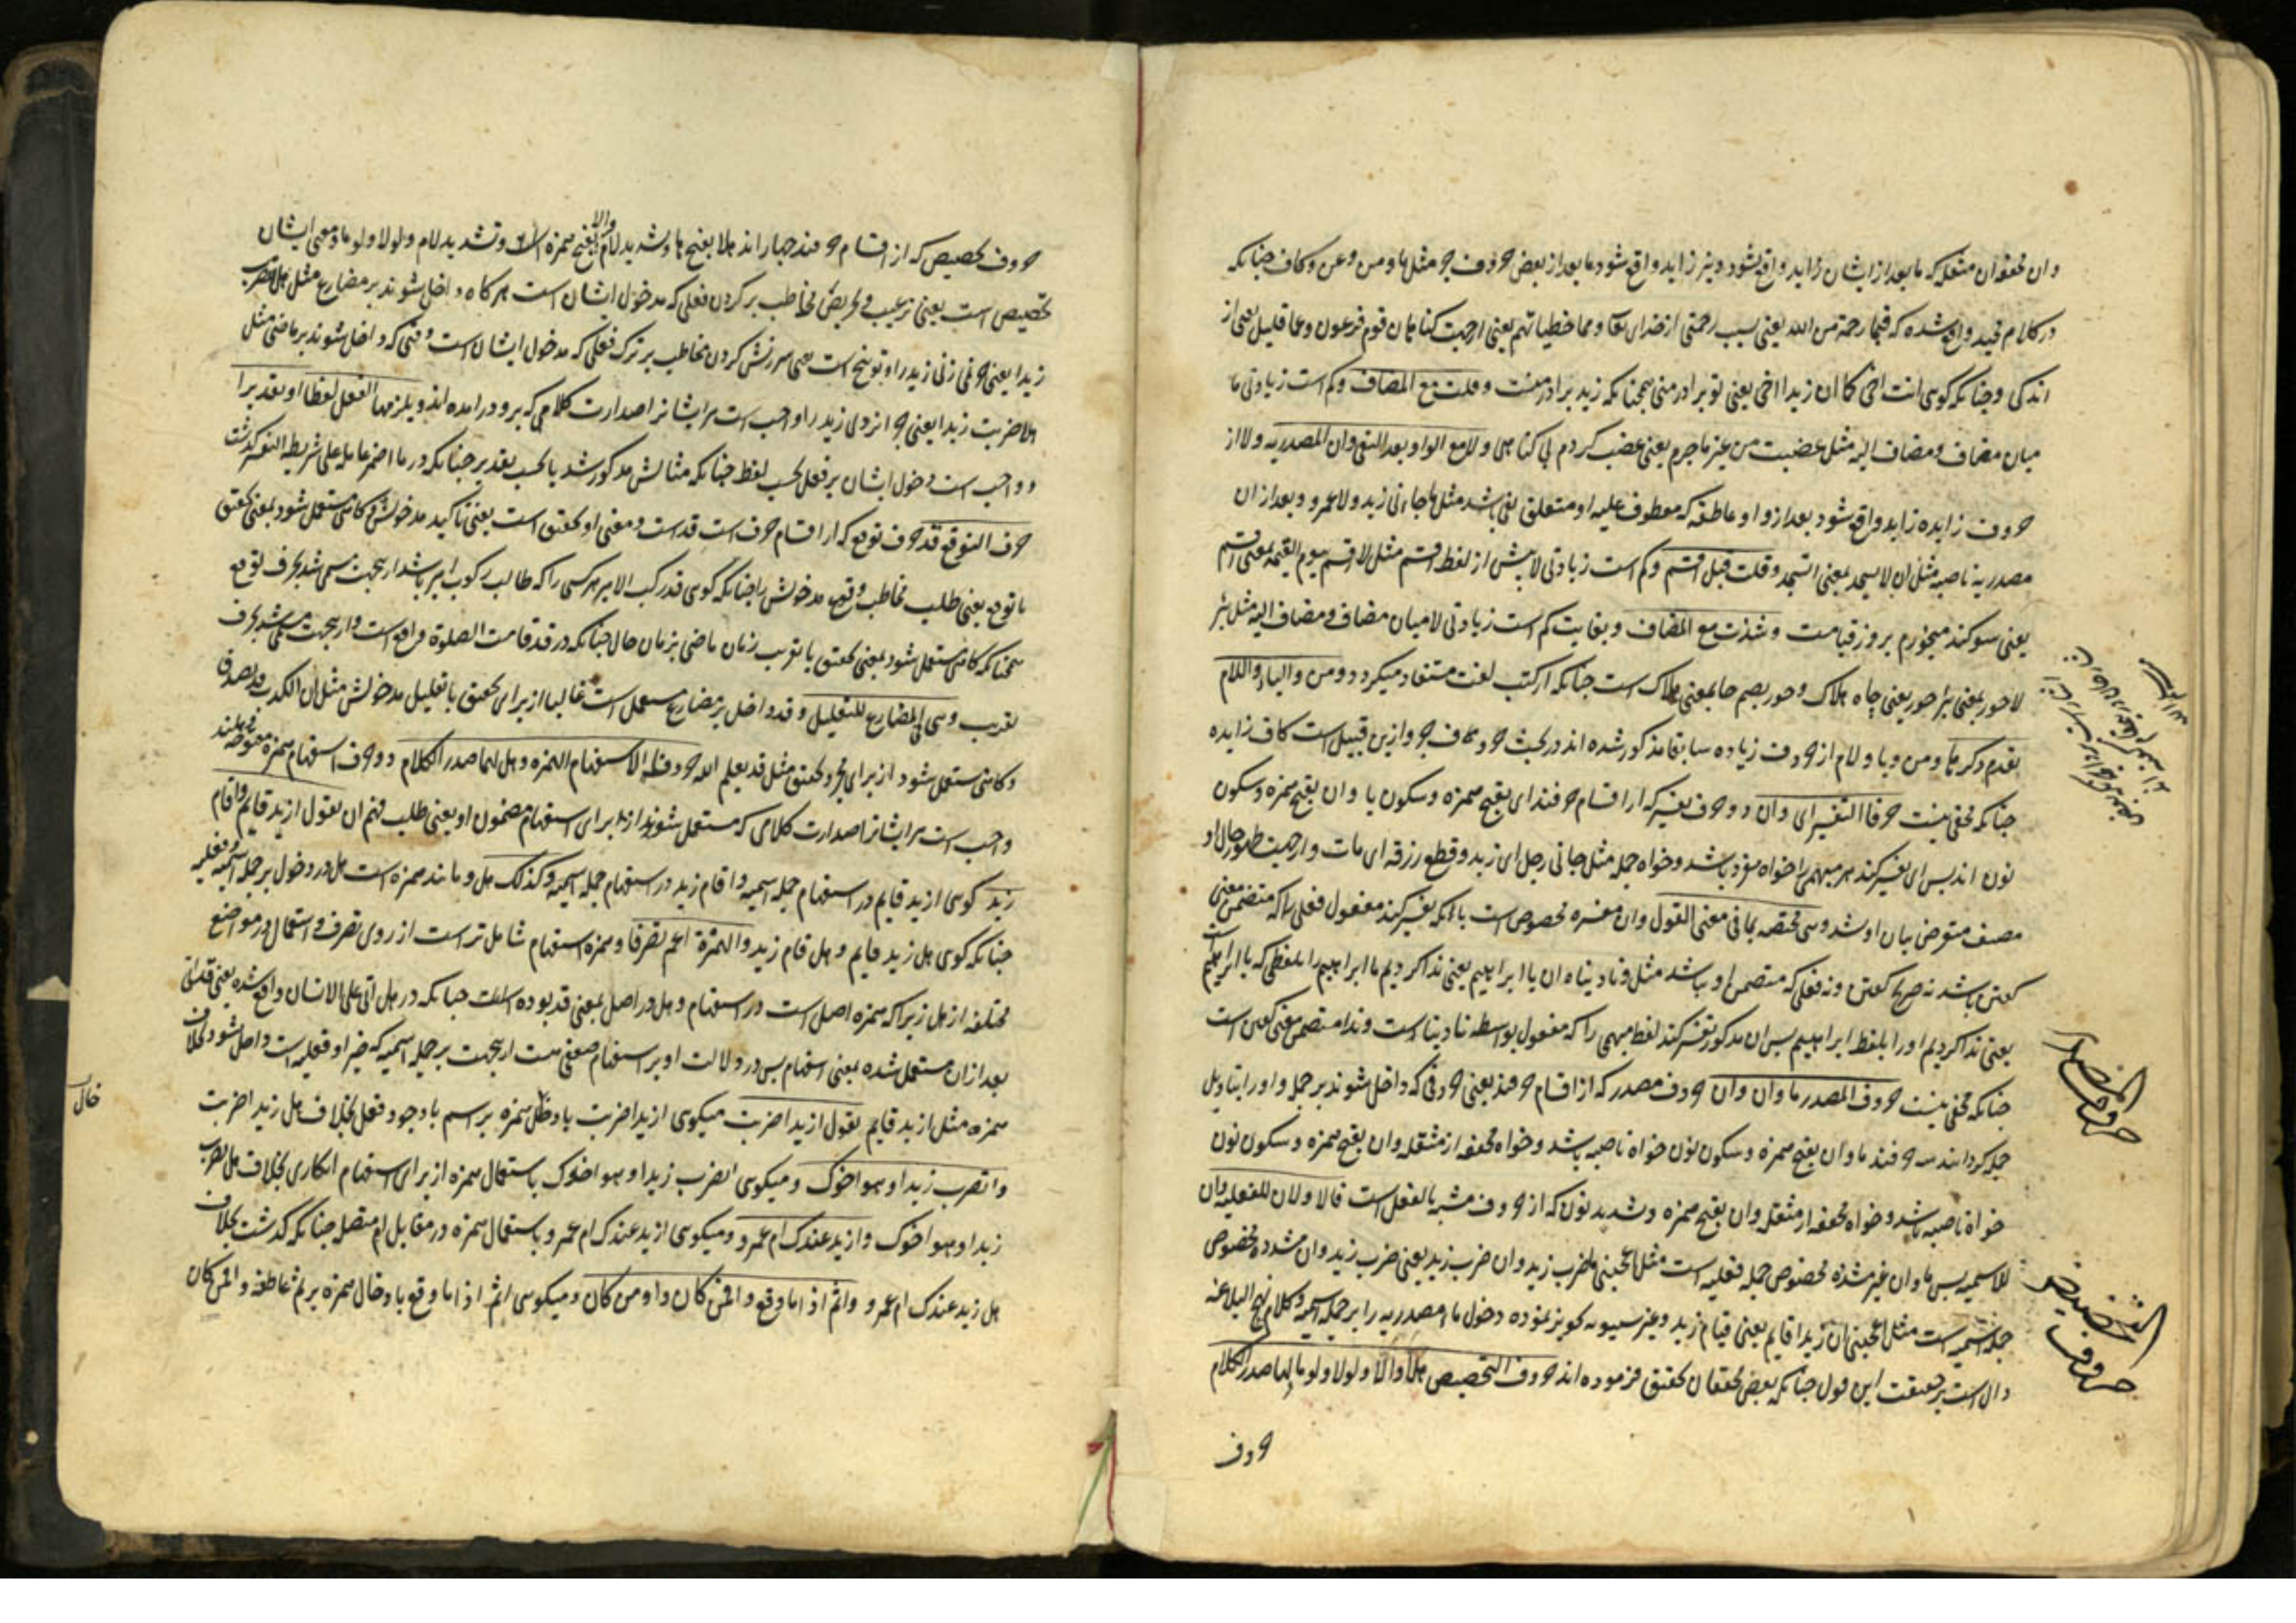 وان مخففه ان مثقله که ما بعد از ایشان زاید واقع نشود ونیز زاید واقع شود ما بعد از بعض حروف جر مثل با ومن وعن وکاف چنانکه
در کلام مجید واقع شده که فبما رحمة من الله یعنی بسبب رحمتی از خدای تعالی ومما خطیئاتهم یعنی از جهت کناهان قوم فرعون وعما قلیل یعنی از
اندکی وچنانکه کوی انت اخی کما ان زیدا اخی یعنی تو برادر منی همچنانکه زید برادر منست وقلت مع المضاف وکم است زیادتی ما
میان مضاف ومضاف الیه مثل غضبت من غیر ما جرم یعنی غضب کردم بی کناهی ولا مع الواو بعد النفی وان المصدریه ولا از
حروف زایده زاید واقع شود بعد از واو عاطفه که معطوف علیه او متعلق نفی باشد مثل ما جاءنی زید ولا عمرو وبعد از ان
مصدریه ناصبه مثل ان لا یسجد بمعنی ان یسجد وقلت قبل اقسم وکم است زیادتی لا پیش از لفظ اقسم مثل لا اقسم بیوم القیمه بمعنی اقسم
یعنی سوکند میخورم بروز قیامت وشذت مع المضاف وبغایت کم است زیادتی لا میان مضاف ومضاف الیه مثل بئر
لا حور بمعنی بئر حور یعنی چاه هلاک وحور بضم حا بمعنی هلاک است چنانکه از کتب لغت مستفاد میکردد ومن والباء واللام
تقدم ذکرها ومن وبا ولام از حروف زیاده سابقا مذکور شده اند در بحث حروف جر وازین قبیل است کاف زایده
چنانکه مخفی نیست حرفا التفسیر ای وان دو حرف تفسیر که از اقسام حرفند ای بفتح همزه وسکون یا وان بفتح همزه وسکون
نون اند پس ای تفسیر کند هر مبهمی را خواه مفرد باشد وخواه جمله مثل جاءنی رجل ای زید وقطع رزقه ای مات واز جهت ظهور حال او
مصنف متعرض بیان او نشد وهی مختصه بما فی معنی القول وان مفسره مخصوص است بانکه تفسیر کند مفعول فعلی را که متضمن معنی
کفتن باشد نه صریح کفتن ونه فعلی که متضمن او نباشد مثل ونادیناه ان یا ابراهیم یعنی ندا کردیم ما ابراهیم را بلفظی که یا ابراهیم است
یعنی ندا کردیم او را بلفظ ابراهیم پس ان مذکور تفسیر کند لفظ مبهمی را که مفعول بواسطه نادینا است وندا متضمن معنی کفتن است
چنانکه مخفی نیست حروف المصدر ما وان وان حروف مصدر که از اقسام حرفند یعنی حروفی که داخل شوند بر جمله واو را بتاویل
جمله کردانند سه حرفند ما وان بفتح همزه وسکون نون خواه ناصبه باشد وخواه مخففه از مثقله وان بفتح همزه وسکون نون
خواه ناصبه باشد وخواه مخففه از مثقله وان بفتح همزه وتشدید نون که از حروف مشبه بالفعل است فالاولان للفعلیه وان
للاسمیه پس ما وان غیر مشدده مخصوص جمله فعلیه است مثل اعجبنی ما ضرب زید وان ضرب زید یعنی ضرب زید وان مشدده مخصوص
جمله اسمیه است مثل اعجبنی ان زیدا قایم یعنی قیام زید وغیر سیبویه تجویز نموده دخول ما مصدریه را بر جمله اسمیه وکلام نهج البلاغه
دال است بر حقیقت این قول چنانکه بعض محققان تحقیق فرموده اند حروف التحضیض هلا والا ولولا ولوما لها صدر الکلام
حروف
حروف المصدر
حروف التحضیض
حروف تحضیض که از اقسام حرفند چهار اند هلا بفتح ها وتشدید لام والا بفتح همزه است وتشدید لام ولولا ولوما ومعنی ایشان
تحضیض است یعنی ترغیب وتحریض مخاطب بر کردن فعلی که مدخول ایشان است هر کاه داخل شوند بر مضارع مثل هلا تضرب
زیدا یعنی چرا نمی زنی زید را وتوبیخ است یعنی سرزنش کردن مخاطب بر ترک فعلی که مدخول ایشان است وقتی که داخل شوند بر ماضی مثل
هلا ضربت زیدا یعنی چرا نزدی زید را وواجب است مر ایشانرا صدارت کلامی که برو درامده اند ویلزمها الفعل لفظا او تقدیرا
وواجب است دخول ایشان بر فعل بحسب لفظ چنانکه مثالش مذکور شد یا بحسب تقدیر چنانکه در ما اضمر عامله علی شریطه التفسیر کذشت
حرف التوقع قد حرف توقع که از اقسام حرف است قد است ومعنی او تحقیق است یعنی تاکید مدخولش وکاهی مستعمل شود بمعنی تحقیق
با توقع یعنی طلب مخاطب وقوع مدخولش را چنانکه کوی قد رکب الامیر هر کسی را که طالب رکوب امیر باشد از بجهت مسمی شد بحرف توقع
همچنانکه کاهی مستعمل شود بمعنی تحقیق با تقریب زمان ماضی بزمان حال چنانکه در قد قامت الصلوة واقع است واز بجهت مسمی شد بحرف
تقریب وهی فی المضارع للتقلیل وقد داخل بر مضارع مستعمل است غالبا از برای تحقیق با تقلیل مدخولش مثل ان الکذوب قد یصدق
وکاهی مستعمل شود از برای مجرد تحقیق مثل قد یعلم الله حروف الاستفهام الهمزه وهل لهما صدر الکلام دو حرف استفهام همزه مفتوحه وهلند
واجب است مر ایشانرا صدارت کلامی که مستعمل شوند از برای استفهام مضمون او یعنی طلب فهم ان تقول ازید قایم واقام
زید کوی ازید قایم در استفهام جمله اسمیه واقام زید در استفهام جمله اسمیه وکذلک هل ومانند همزه است هل در دخول بر جمله اسمیه وفعلیه
چنانکه کوی هل زید قایم وهل قام زید والهمزة اعم تصرفا وهمزه استفهام شامل تر است از روی تصرف واستعمال در مواضع
مختلفه از هل زیرا که همزه اصل است در استفهام وهل در اصل بمعنی قد بوده است چنانکه در هل اتی علی الانسان واقع شده یعنی قد اتی
بعد از ان مستعمل شده بمعنی استفهام پس در دلالت او بر استفهام ضعفی هست از بجهت بر جمله اسمیه که خبر او فعلیه است داخل نشود بخلاف
همزه مثل ازید قایم تقول ازیدا ضربت میکوی ازیدا ضربت بادخال همزه بر اسم با وجود فعل بخلاف هل زیدا ضربت
واتضرب زیدا وهو اخوک ومیکوی اتضرب زیدا وهو اخوک باستعمال همزه از برای استفهام انکاری بخلاف هل تضرب
زیدا وهو اخوک وازید عندک ام عمرو ومیکوی ازید عندک ام عمرو باستعمال همزه در مقابل ام متصله چنانکه کذشت بخلاف
هل زید عندک ام عمرو واثم اذا ما وقع وافمن کان واومن کان ومیکوی اثم اذا ما وقع بادخال همزه بر ثم عاطفه وافمن کان
خال